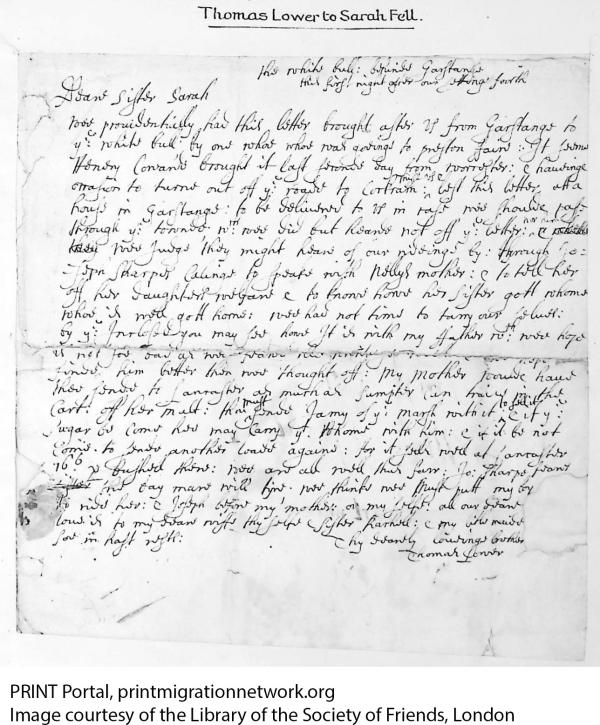 Thomas Lower to Sarah Fell.
the white bull: behinde Garstange
this first night after our settinge fourth
Deare Sister Sarah
Wee providentially had this letter brought after us from Garstange to
ye white bull by one whoe was goeinge to preston faire: It seems
Henery Coward brought it last seconde day from worcester: & haveinge
occasion to turne out off ye roade to left this letter att a
house in Garstange: to be delivered to us in case wee shoulde pase
through ye towne wch wee did but heared not off ye letter:
wee Judge they might heare of our rideinge by: through Jo:
seph Sharpes Callinge to speake with Nellys mother: & to tell her
off her daughters welfare & to knowe howe her sister gott whome
whoe is well gott home: wee had not time to tarry our selves:
by ye Inclosed you may see howe It is with my ffather wch: wee hope
is not soe bad as wee
finde him better then wee thought off: my mother woulde have
thee sende to Lancaster as much as Sumpter can in the
Cart: off her malt: must sende Jamy of ye marsh with it & if ye
Sugar be come hee may Carry yt whome with him: & if it be not
Come to sende another loade againe: for it sells well at Lancaster
16s 6 p bushell there: wee are all well thus farr: Jo: Sharpe feares
the bay mare will tyre wee thinke wee must putt my boy
to ride her: & Joseph before my mother: or my selfe: all our deare
love is to my deare wife thy selfe sister Rachell: &
soe in hast rests: Thy dearely loveinge brother
Thomas Lower
PRINT Portal, printmigrationnetwork.org
Image courtesy of the Library of the Society of Friends, London